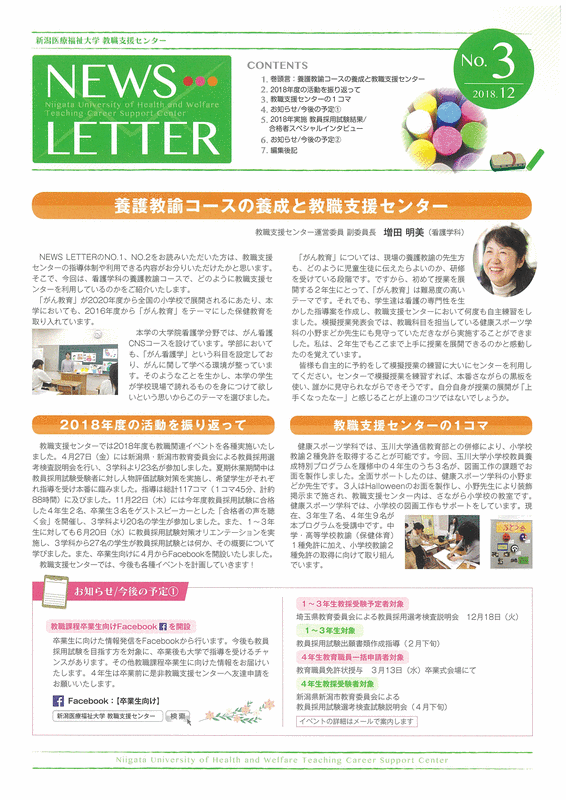 新潟医療福祉大学 教職支援センター
NEWS
Niigata University of Health and Welfare
Teaching Career Support Center
LETTER
CONTENTS
1. 巻頭言：養護教諭コースの養成と教職支援センター
2. 2018年度の活動を振り返って
3. 教職支援センターの1コマ
4. お知らせ/今後の予定①
5. 2018年実施 教員採用試験結果/
合格者スペシャルインタビュー
6. お知らせ/今後の予定②
7. 編集後記
No. 3
2018.12
養護教諭コースの養成と教職支援センター
教職支援センター運営委員 副委員長 増田 明美（看護学科）
NEWS LETTERのNO.1、NO.2をお読みいただいた方は、教職支援
センターの指導体制や利用できる内容がお分りいただけたかと思います。
そこで、今回は、看護学科の養護教諭コースで、どのように教職支援セ
ンターを利用しているのかをご紹介いたします。
「がん教育」が2020年度から全国の小学校で展開されるにあたり、本
学においても、2016年度から「がん教育」をテーマにした保健教育を
取り入れています。
本学の大学院看護学分野では、がん看護
CNSコースを設けています。学部において
も、「がん看護学」という科目を設定してお
り、がんに関して学べる環境が整っていま
す。そのようなことを生かし、本学の学生
が学校現場で誇れるものを身につけて欲し
いという思いからこのテーマを選びました。
「がん教育」については、現場の養護教諭の先生方
も、どのように児童生徒に伝えたらよいのか、研修
を受けている段階です。ですから、初めて授業を展
開する２年生にとって、「がん教育」は難易度の高い
テーマです。それでも、学生達は看護の専門性を生
かした指導案を作成し、教職支援センターにおいて何度も自主練習をし
ました。模擬授業発表会では、教職科目を担当している健康スポーツ学
科の小野まどか先生にも見守っていただきながら実施することができま
した。私は、２年生でもここまで上手に授業を展開できるのかと感動し
たのを覚えています。
皆様も自主的に予約して模擬授業の練習に大いにセンターを利用し
てください。センターで模擬授業を練習すれば、本番さながらの黒板を
使い、誰かに見守られながらできそうです。自分自身が授業の展開が「上
手くなったな―」と感じることが上達のコツではないでしょうか。
2018年度の活動を振り返って
教職支援センターでは2018年度も教職関連イベントを各種実施いたし
ました。4月27日（金）には新潟県・新潟市教育委員会による教員採用選
考検査説明会を行い、３学科より23名が参加しました。夏期休業期間中は
教員採用試験受験者に対し人物評価試験対策を実施し、希望学生がそれぞ
れ指導を受け本番に臨みました。指導は総計117コマ（1コマ45分、計約
88時間）に及びました。11月22日（木）には今年度教員採用試験に合格
した４年生２名、卒業生３名をゲストスピーカーとした「合格者の声を聴
く会」を開催し、３学科より20名の学生が参加しました。また、１～３年
生に対しても６月20日（水）に教員採用試験対策オリエンテーションを実
施し、３学科から27名の学生が教員採用試験とは何か、その概要について
学びました。また、卒業生向けに４月からFacebookを開設いたしました。
教職支援センターでは、今後も各種イベントを計画していきます！
教職支援センターの1コマ
健康スポーツ学科では、玉川大学通信教育部との併修により、小学校
教諭２種免許を取得することが可能です。今回、玉川大学小学校教員養
成特別プログラムを履修中の４年生のうち３名が、図画工作の課題でお
面を製作しました。全面サポートしたのは、健康スポーツ学科の小野ま
どか先生です。３人はHalloweenのお面を製作し、小野先生により装飾
掲示まで施され、教職支援センター内は、さながら小学校の教室です。
健康スポーツ学科では、小学校の図画工作もサポートをしています。現
在、３年生７名、４年生９名が
本プログラムを受講中です。中
学・高等学校教諭（保健体育）
１種免許に加え、小学校教諭２
種免許の取得に向けて取り組ん
でいます。
お知らせ/今後の予定①
教職課程卒業生向けFacebook を開設
卒業生に向けた情報発信をFacebookから行います。今後も教員
採用試験を目指す方を対象に、卒業後も大学で指導を受けるチャ
ンスがあります。その他教職課程卒業生に向けた情報をお届けい
たします。４年生は卒業前に是非教職支援センターへ友達申請を
お願いいたします。
Facebook：【卒業生向け】
新潟医療福祉大学 教職支援センター 検索
１～３年生教採受験予定者対象
埼玉県教育委員会による教員採用選考検査説明会 12月18日（火）
１～３年生対象
教員採用試験出願書類作成指導（２月下旬）
４年生教育職員一括申請者対象
教育職員免許状授与 3月13日（水）卒業式会場にて
４年生教採受験者対象
新潟県新潟市教育委員会による
教員採用試験選考検査試験説明会（４月下旬）
イベントの詳細はメールで案内します
Niigata University of Health and Welfare Teaching Career Support Center